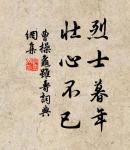 烈士暮年
壯心不已
曹操龜雖壽詞典
網集